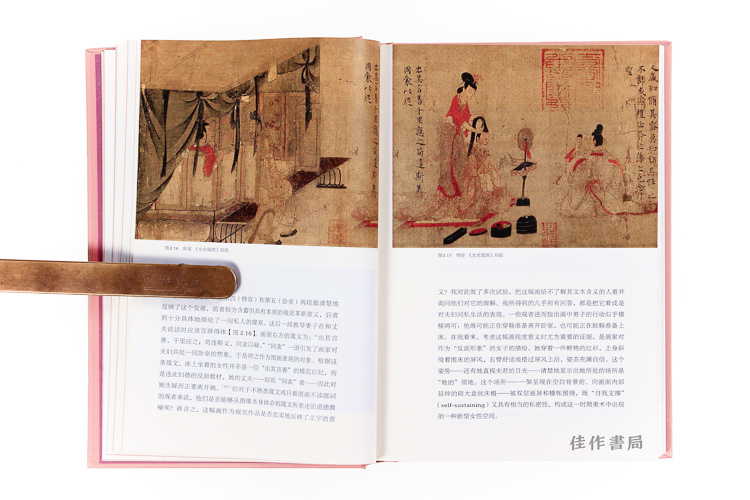 出其言善千里應之苟違斯義
同衾以疑
图2.16 卧室,《女史箴图》局部
四(修容)和第五(卧室)两段最清楚地
反映了这个发展,前者较为含蓄但具有本质的视觉革新意义,后者
则十分具体地描绘了一间私人的寝室。这后一段教导妻子在和丈
夫说话时应该言辞得体【图2.16】。画面右方的箴文为:“出其言
善,千里应之;苟违斯义,同衾以疑。”“同衾”一语引发了画家对
夫妇共处一间卧室的想象,于是将之作为图画表现的对象。根据这
条箴文,床上坐着的女性并非是一位“出其言善”的模范后妃,而
是违此妇德的反面教材,她的丈夫——即其“同衾”者——因此对
她生疑而正要离开她。 但对于不熟悉箴文或只看图画不读题词
的观者来说,他们是否能够从图像本身体会到箴文所表述的道德教
喻呢?换言之,这幅画作为视觉作品是否忠实地反映了文字的意
出其言善千里應之苟違斯義
同衾以疑
图2.17 修容,《女史箴图》局部
义?我对此做了多次试验,把这幅画给不了解其文本含义的人看并
询问他们对它的理解。我所得到的几乎所有回答,都是把它看成是
对夫妇间私生活的表现。一些观者进而指出画中男子的行动似乎模
棱两可:他既可能正在穿鞋准备离开卧室,也可能正在脱鞋准备上
床。在我看来,考虑这幅画视觉意义时尤为重要的证据,是画家对
作为“反面形象”的女子的描绘。她穿着一件鲜艳的红衫,上身斜
倚着围床的屏风,右臂舒适地搭过屏风上沿,姿态充满自信。这个
姿势——还有她直视夫君的目光——清楚地显示出她所处的场所是
“她的”领地。这个场所——架呈现在空白背景前、向画面内部
延伸的硕大盒状床榻——被双层画屏和幔帐围绕,既“自我支撑”
(self-sustaining)又具有相当的私密性,构成这一时期美术中出现
的一种新型女性空间。
佳作書局